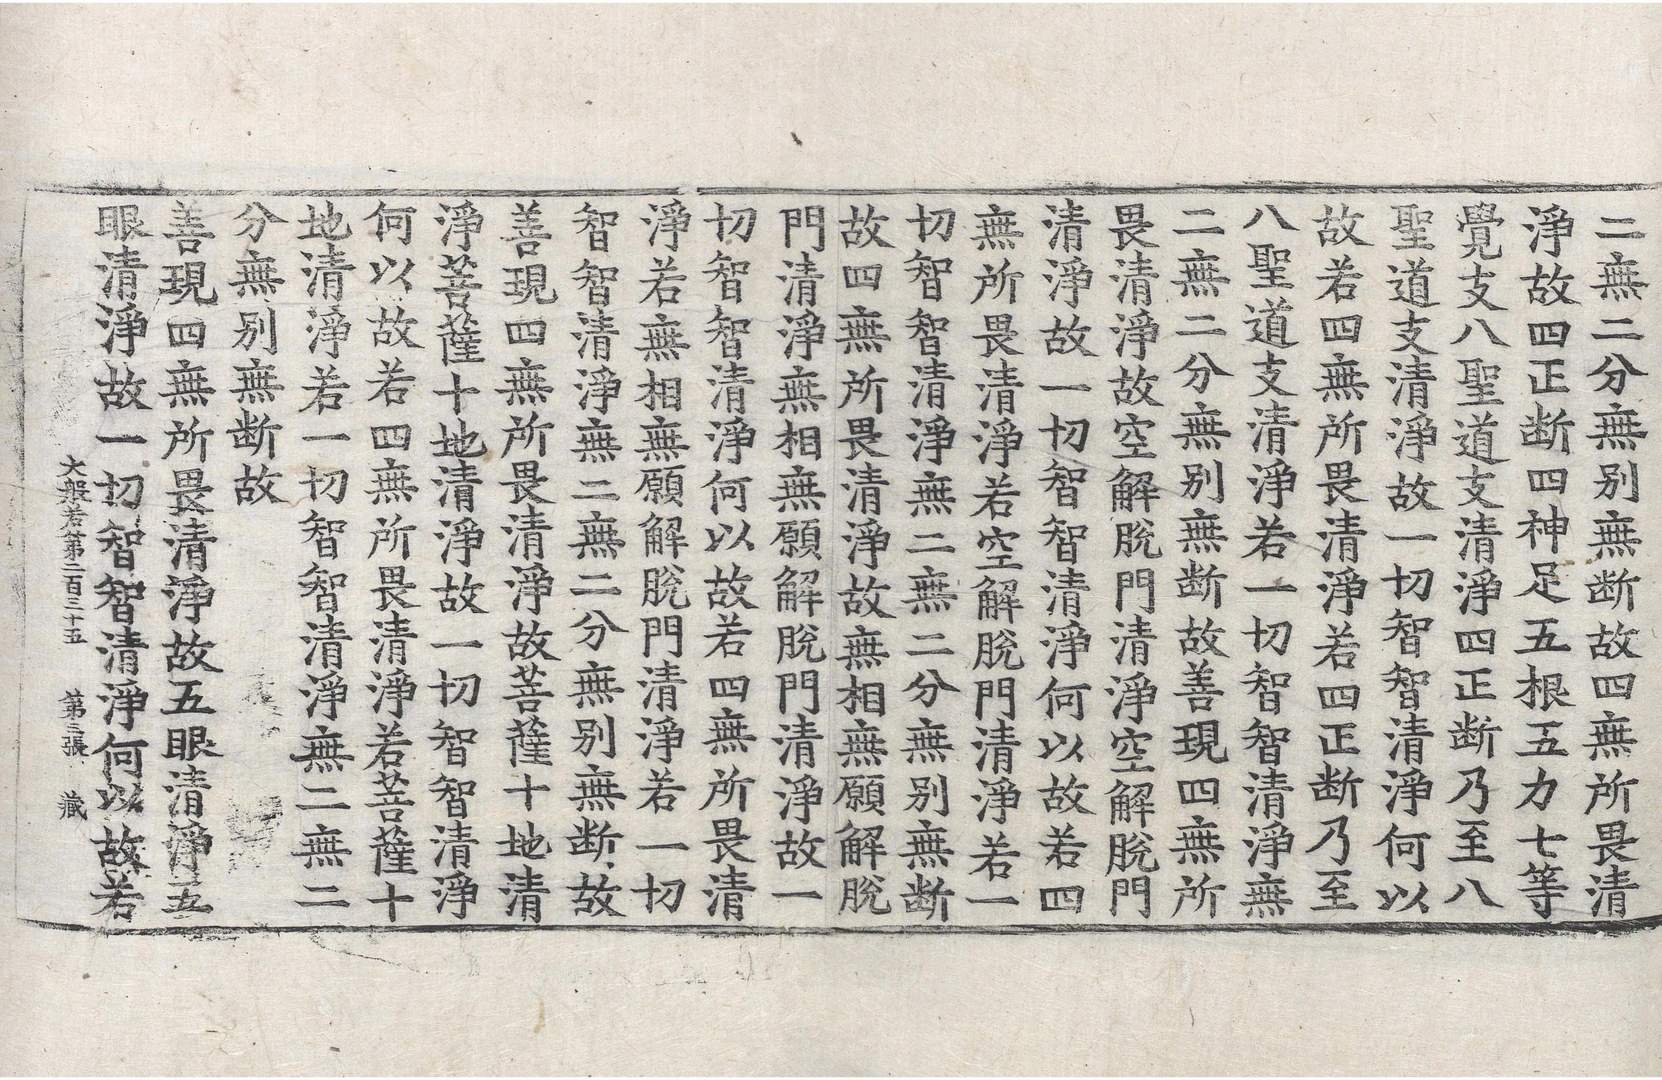 二無二分無別無断故四無所畏清
淨故四正断四神足五根五力七等
覺支八聖道支清淨四正断乃至八
聖道支清淨故一切智智清淨何以
故若四無所畏清淨若四正断乃至
八聖道支清淨若一切智智清淨無
二無二分無別無断故善現四無所
畏清淨故空解脫門清淨空解脫門
清淨故一切智智清淨何以故若四
無所畏清淨若空解脫門清淨若一
切智智清淨無二無二分無別無断
故四無所畏清淨故無相無願解脫
門清淨無相無願解脫門清淨故一
切智智清淨何以故若四無所畏清
淨若無相無願解脫門清淨若一切
智智清淨無二無二分無別無断故
善現四無所畏清淨故菩薩十地清
淨菩薩十地清淨故一切智智清淨
何以故若四無所畏清淨若菩薩十
地清淨若一切智智清淨無二無二
分無別無断故
善現四無所畏清淨故五眼清淨五
眼清淨故一切智智清淨何以故若
大般若第二百三十五 第三張 藏